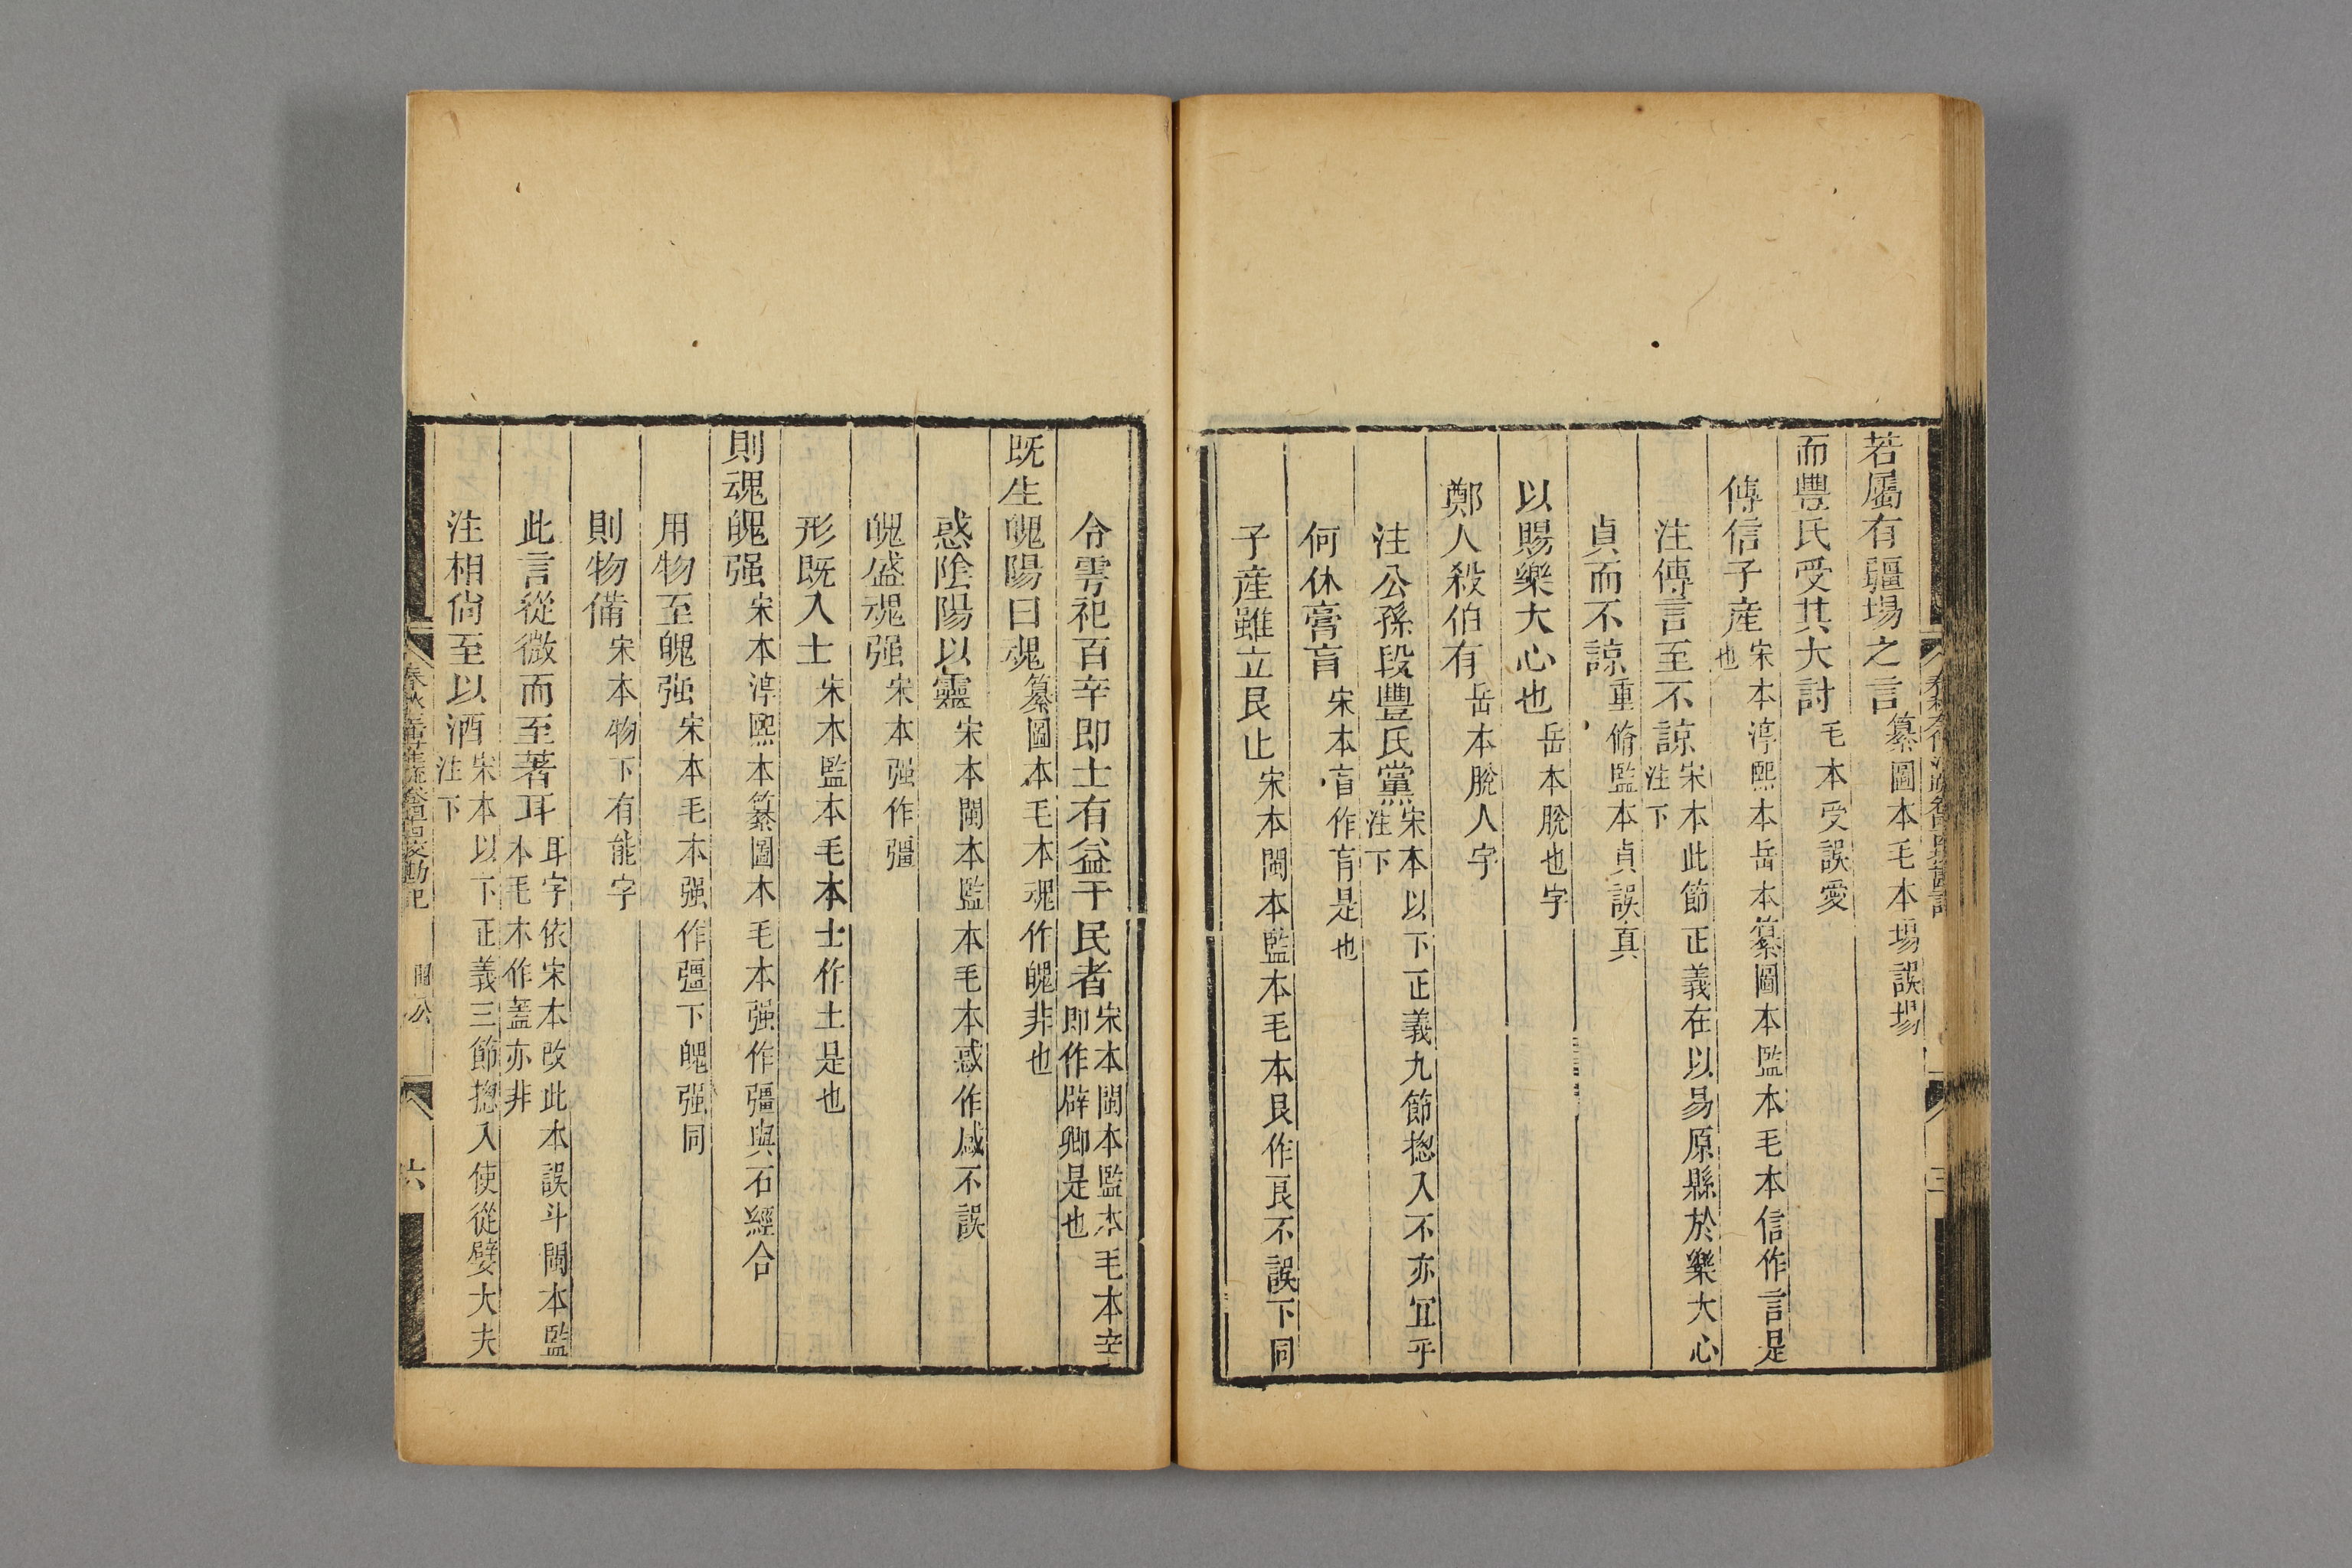 若屬有疆場之言纂圖本毛本場誤場
而豐氏受其大討毛本受誤愛
傳信子産宋本淳熙本岳本纂圖本監本毛本信作言是也
注傳言至不諒宋本此節正義在以易原縣於樂大心注下
貞而不諒重脩監本貞誤真
以賜樂大心也岳本脫也字
鄭人殺伯有岳本脫人字
注公孫段豐氏黨宋本以下正義九節揔入不亦宜乎注下
何休膏肓宋本肓作肓是也
子産雖立艮止宋本閩本監本毛本艮作良不誤下同
令雩祀百辛即士有益于民者宋本閩本監本毛本辛即作辟卿是也
既生魄陽曰魂纂圖本毛本魂作魄非也
惑陰陽以靈宋本閩本監本毛本惑作感不誤
魄盛魂强宋本强作彊
形既入士宋本監本毛本士作土是也
則魂魄强宋本淳熙本纂圖本毛本强作彊與石經合
用物至魄强宋本毛本强作彊下魄强同
則物備宋本物下有能字
此言從微而至著耳耳字依宋本改此本誤斗閩本監本毛本作蓋亦非
注相尚至以酒宋本以下正義三節揔入使從嬖大夫注下
六